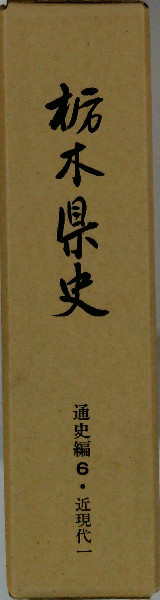 栃木県史
通史編6・近現代一